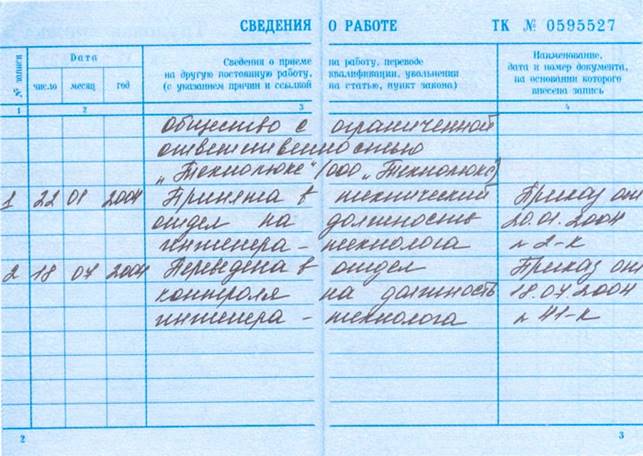 СВЕДЕНИЯ О РАБОТЕ ТК № 0595527
№ записи
Дата
число месяц год
Сведения о приеме на работу, переводе
на другую постоянную работу, квалификации, увольнении
(с указанием причин и ссылкой на статью, пункт закона)
Наименование,
дата и номер документа,
на основании которого
внесена запись
1 2 3 4
Общество с ограниченной
ответственностью
„Технолюкс" (ООО „Технолюкс")
1 22 01 2004 Принята в технический Приказ от
отдел на должность 20.01.2004
инженера - технолога н 2-к
2 18 07 2004 Переведена в отдел Приказ от
контроля на должность 18.07.2004
инженера - технолога н 41-к
2 3